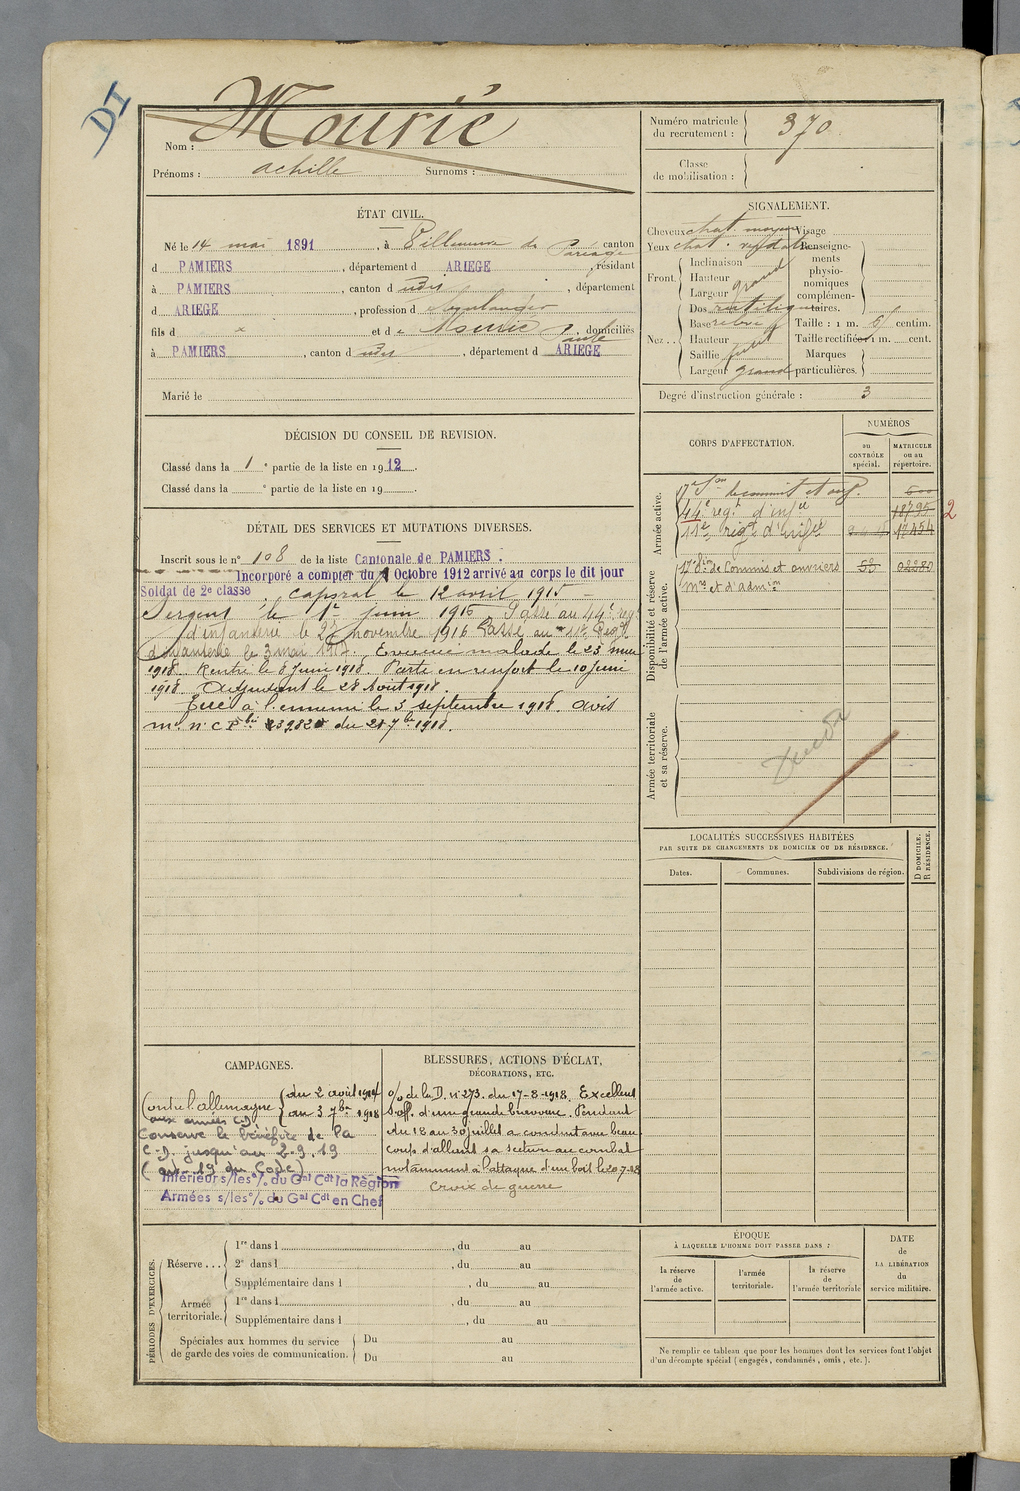 DI
Nom : Mourié
Prénoms : achille Surnoms :
Numéro matricule du recrutement : 370
Classe de mobilisation :
ÉTAT CIVIL.
Né le 14 mai 1891, à Villeneuve du Paréage, canton
d PAMIERS, département d ARIEGE, résidant
à PAMIERS, canton d udit, département
d ARIEGE, profession d boulanger
fils d × et de Mourié, domiciliés
à PAMIERS, canton d udit, département d ARIEGE
Marié le
SIGNALEMENT.
Cheveux chat. moyen Visage
Yeux chat. Renseigne-
Front. Inclinaison ments
Hauteur grand physio-
Largeur nomiques
Dos rectiligne complémen-
taires.
Nez .. Base Taille : 1 m. centim.
Hauteur Taille rectifiée : 1 m. cent.
Saillie petit Marques
Largeur grand particulières.
Degré d'instruction générale : 3
DÉCISION DU CONSEIL DE REVISION.
Classé dans la 1e partie de la liste en 1912.
Classé dans la e partie de la liste en 19
DÉTAIL DES SERVICES ET MUTATIONS DIVERSES.
Inscrit sous le n° 108 de la liste Cantonale de PAMIERS.
Incorporé a compter du 1 Octobre 1912 arrivé au corps le dit jour
Soldat de 2e classe, caporal le 12 avril 1915 –
Sergent le 1er juin 1916 Passé au 44e rég
d'infanterie le 27 novembre 1916 Passé au 11e Régt
d'infanterie le 3 mai 1917. Evacué malade le 23 mai
1918. Rentré le 8 Juin 1918. Parti en renfort le 10 juin
1918. Adjudant le 28 Août 1918.
Tué à l'ennemi le 3 septembre 1918. Avis
du 28 7bre 1918.
CORPS D'AFFECTATION.
NUMÉROS
au CONTRÔLE spécial.
MATRICULE ou au répertoire.
Armée active.
17e Son de commis et ouv.
44e régt d'infie 18795 2
11e régt d'infie 17454
Disponibilité et réserve de l'armée active.
17e Son de Commis et ouvriers 58 02280
mres et d'admion
Armée territoriale et sa réserve.
LOCALITÉS SUCCESSIVES HABITÉES
PAR SUITE DE CHANGEMENTS DE DOMICILE OU DE RÉSIDENCE.
Dates. Communes. Subdivisions de région. D DOMICILE. R RÉSIDENCE.
CAMPAGNES.
Contre l'allemagne du 2 août 1914
au 3 7bre 1918
aux armées C.D.
Conserve le bénéfice de la
C.D. jusqu'au 2.9.19
(art. 19 du Code)
Intérieur s/les % du Gal Cdt la Région
Armées s/les % du Gal Cdt en Chef
BLESSURES, ACTIONS D'ÉCLAT,
DÉCORATIONS, ETC.
O/ de la D. n° 273. du 17-8-1918. Excellent
s.off. d'une grande bravoure. Pendant
du 18 au 30 juillet a conduit avec beau-
coup d'allant sa section au combat
notamment à l'attaque d'un bois le 20-7-18
Croix de guerre
PÉRIODES D'EXERCICES.
Réserve ... 1re dans l , du au
2e dans l , du au
Supplémentaire dans l , du au
Armée territoriale. 1re dans l , du au
Supplémentaire dans l , du au
Spéciales aux hommes du service Du au
de garde des voies de communication. Du au
ÉPOQUE
À LAQUELLE L'HOMME DOIT PASSER DANS :
la réserve de l'armée active.
l'armée territoriale.
la réserve de l'armée territoriale
DATE de LA LIBÉRATION du service militaire.
Ne remplir ce tableau que pour les hommes dont les services font l'objet
d'un décompte spécial (engagés, condamnés, omis, etc.).